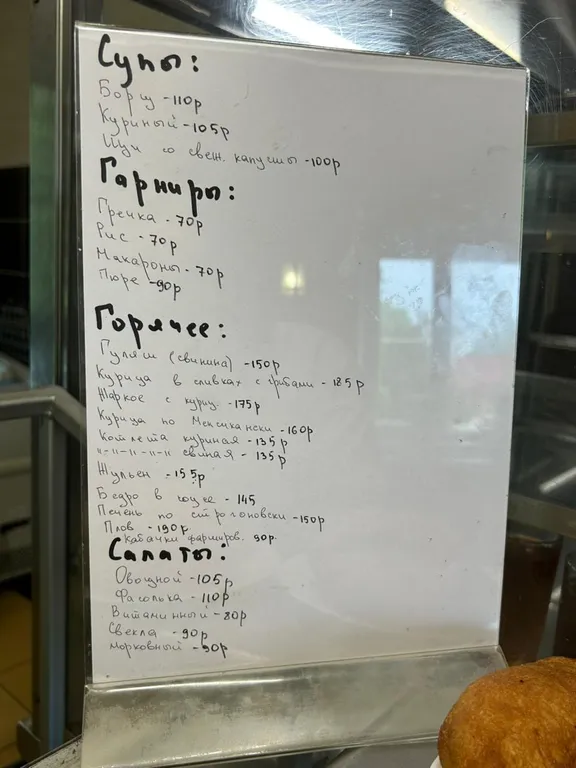 Супы:
Борщ - 110р
Куриный - 105р
Щи со свеж. капусты - 100р
Гарниры:
Гречка - 70р
Рис - 70р
Макароны - 70р
Пюре - 90р
Горячее:
Гуляш (свинина) - 150р
Курица в сливках с грибами - 185р
Жаркое с куриц. - 175р
Курица по Мексикански - 160р
Котлета куриная - 135р
"-"-"-"-" свиная - 135р
Жульен - 155р
Бедро в соусе - 145
Печень по строгоновски - 150р
Плов - 190р
Кабачки фарширов. 90р
Салаты:
Овощной - 105р
Фасолька - 110р
Витаминный - 80р
Свекла - 90р
Морковный - 90р